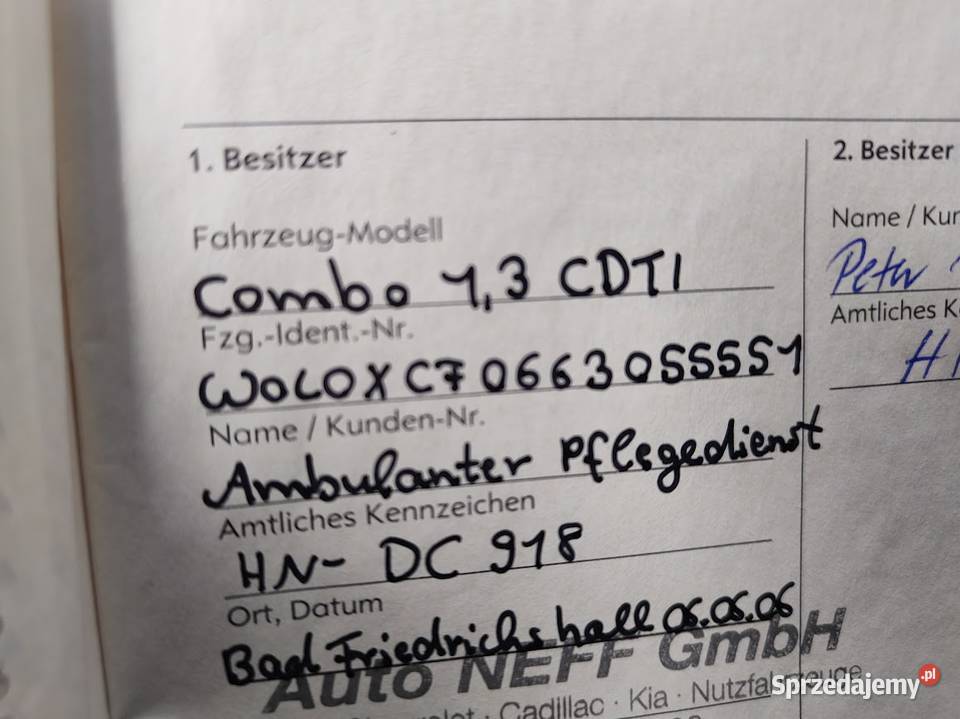 1. Besitzer
Fahrzeug-Modell
Combo 1,3 CDTI
Fzg.-Ident.-Nr.
W0L0XCF0663055551
Name / Kunden-Nr.
Ambulanter Pflegedienst
Amtliches Kennzeichen
HN- DC 918
Ort, Datum
Bad Friedrichshall 06.06.06
Auto NEFF GmbH
Cadillac · Kia · Nutzfahrzeuge
2. Besitzer
Name / Kun
Peter
Amtliches K
H
Sprzedajemy.pl